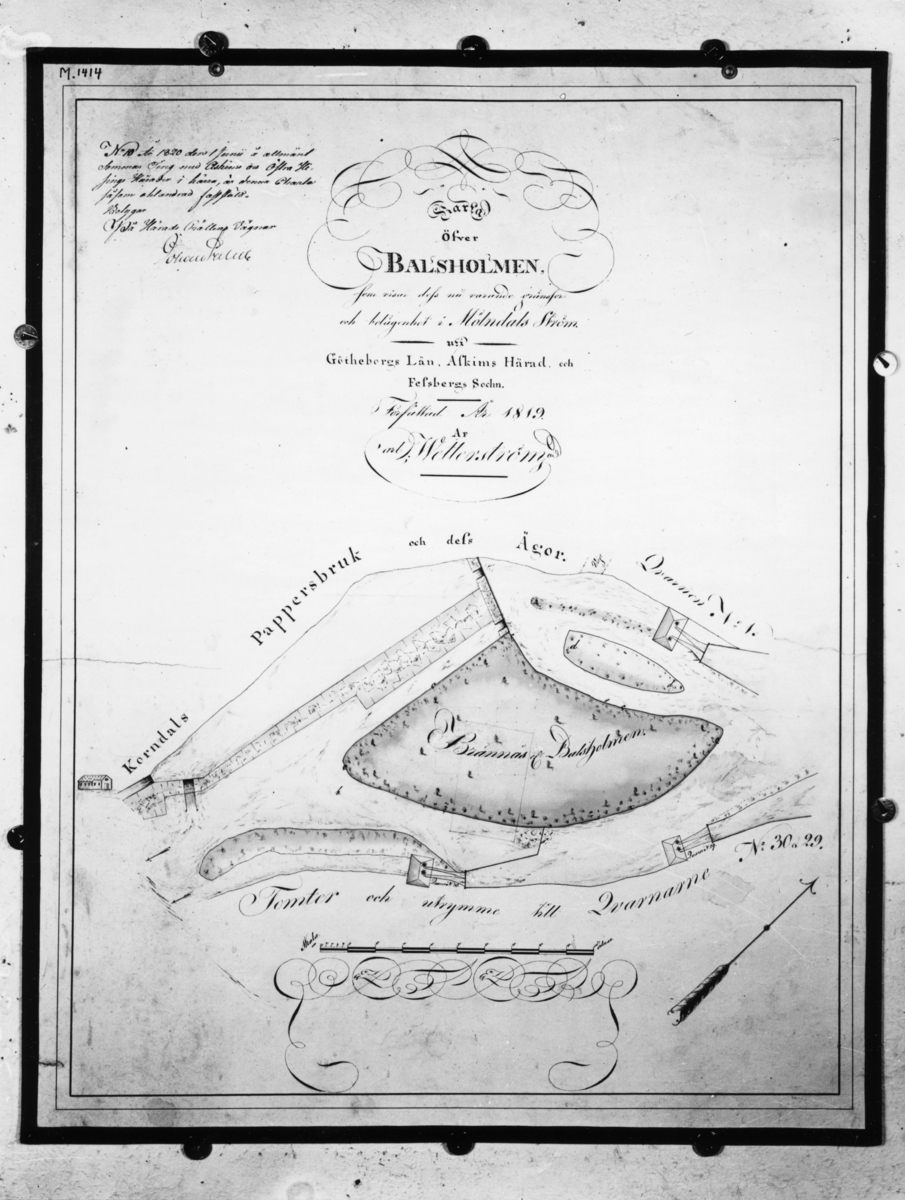 M.1414
No 10 År 1820 den 1 Junii å allmänt
Sommar Ting med Askims
Härader i är denna Charta
såsom oklandrad fastställd.
Betygar
På Härads Rättens Vägnar
Karta
Öfver
BALSHOLMEN,
som visar dess nu varande gränsor
och belägenhet i Mölndals Ström.
uti
Götheborgs Län, Askims Härad, och
Fessbergs Sochn.
Författad År 1819.
Af
Carl Wetterström
Korndals Pappersbruk och dess Ägor.
Qvarnen No 1.
Brännäs & Balsholmen.
Tomter och utrymme till Qvarnarne No 30 a 29.
Skala